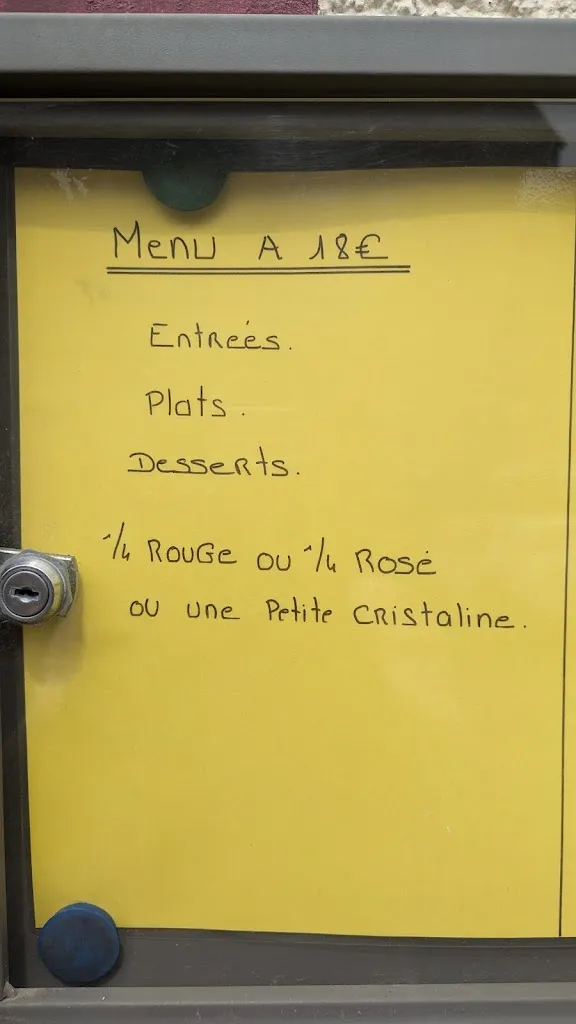 Menu A 18€
Entrées.
Plats.
Desserts.
1/4 Rouge ou 1/4 Rosé
ou une Petite Cristaline.